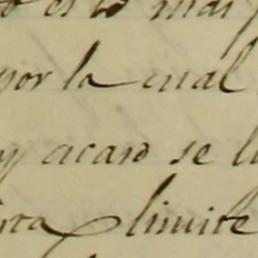 es lo mas
por la cual
y acaso se
limite